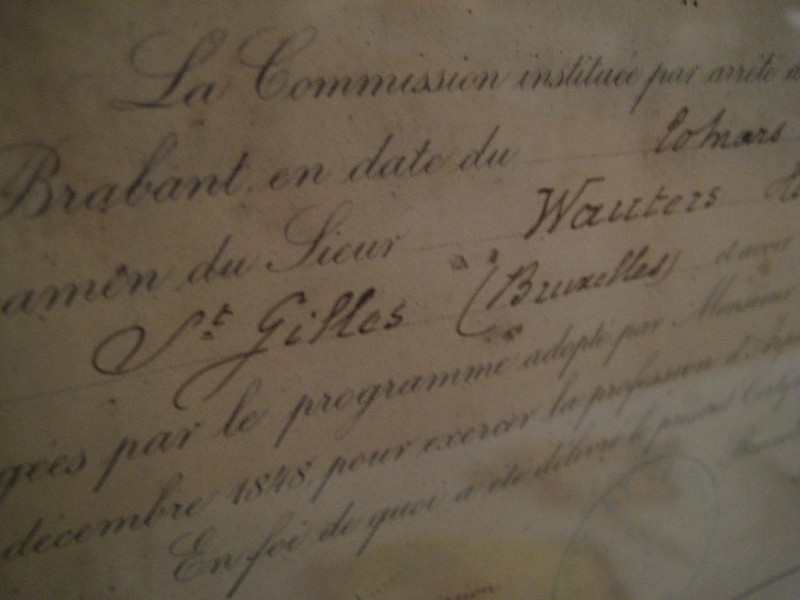 La Commission instituée par arrêté d
Brabant, en date du 20 mars
amen du Sieur Wauters
St Gilles (Bruxelles) et avoir
gées par le programme adopté par Monsieur
décembre 1848, pour exercer la profession d'Arp
En foi de quoi a été délivré le présent Certif